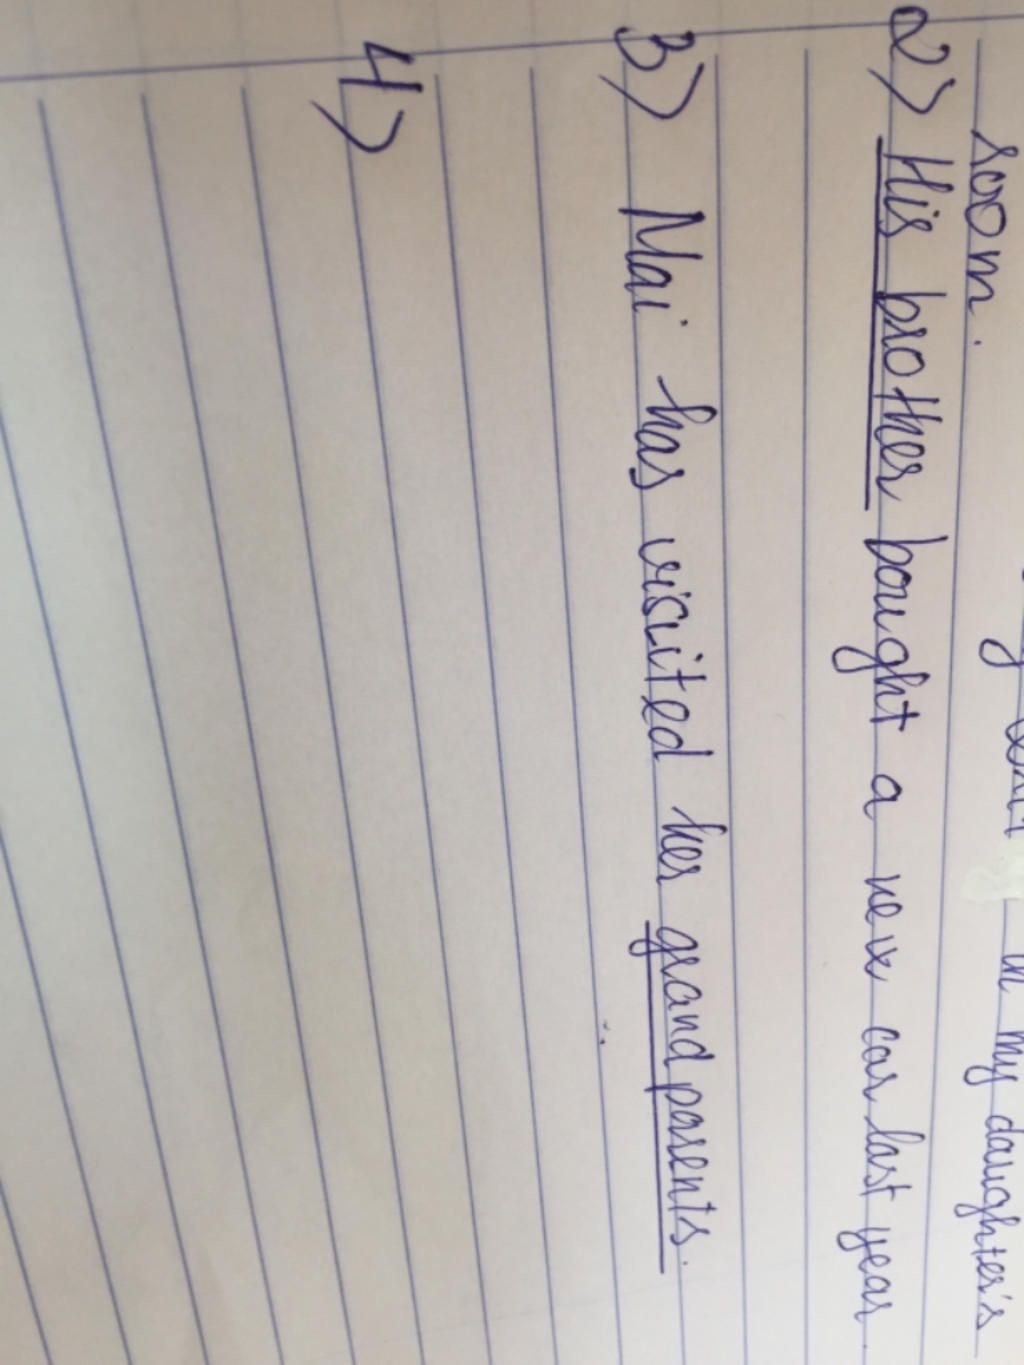 in my daughter's
room.
2) His brother bought a new car last year.
3) Mai has visited her grandparents.
4)